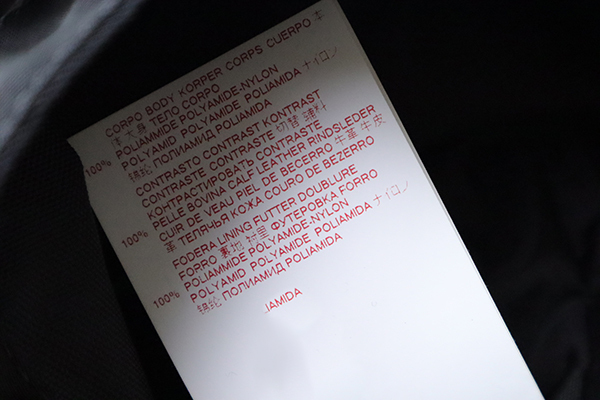 CORPO BODY KÖRPER CORPS CUERPO
洋大身 ТЕЛО CORPO
POLIAMMIDE POLYAMIDE-NYLON
100% POLYAMID POLYAMIDE POLIAMIDA ナイロン
錦纶 ПОЛИАМИД POLIAMIDA
CONTRASTO CONTRAST KONTRAST
CONTRASTE CONTRASTE 切替
КОНТРАСТИРОВАТЬ CONTRASTE
PELLE BOVINA CALF LEATHER RINDSLEDER
100% CUIR DE VEAU PIEL DE BECERRO 牛革 牛皮
革 ТЕЛЯЧЬЯ КОЖА COURO DE BEZERRO
FODERA LINING FUTTER DOUBLURE
FORRO 裏地 衬里 ФУТЕРОВКА FORRO
POLIAMMIDE POLYAMIDE-NYLON
100% POLYAMID POLYAMIDE POLIAMIDA ナイロン
錦纶 ПОЛИАМИД POLIAMIDA
IAMIDA